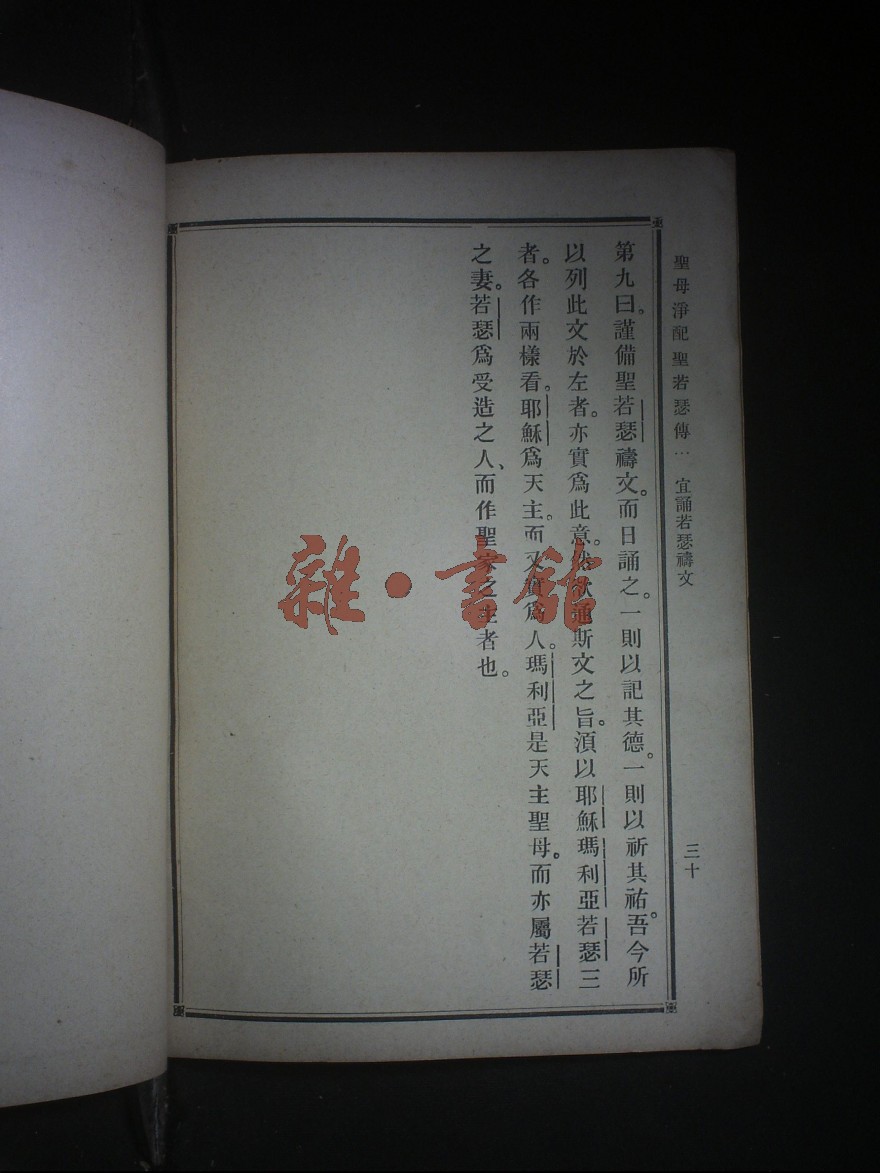 聖母淨配聖若瑟傳… 宜誦若瑟禱文
三十
第九曰。謹備聖若瑟禱文。而日誦之。一則以記其德。一則以祈其祐。吾今所
以列此文於左者。亦實爲此意。欲誦斯文之旨。須以耶穌瑪利亞若瑟三
者。各作兩樣看。耶穌爲天主。而又實爲人。瑪利亞是天主聖母。而亦屬若瑟
之妻。若瑟爲受造之人、而作聖家之主者也。
雜·書館